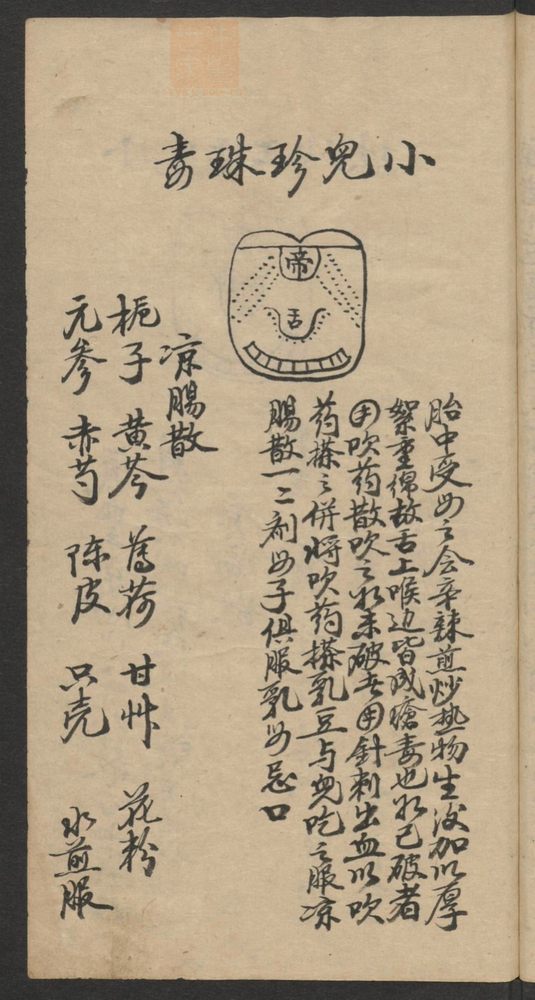 小兒珍珠毒
帝
舌
胎中受母之会辛辣煎炒热物生后加以厚
絮重绵故舌上喉边皆成瘡毒也如已破者
用吹药散吹之如未破者用針刺出血以吹
药搽之併将吹药搽乳豆与兒吃之服凉
腸散一二剂母子俱服乳母忌口
凉腸散
栀子 黄芩 薄荷 甘艸 花粉
元參 赤芍 陈皮 只壳 水煎服